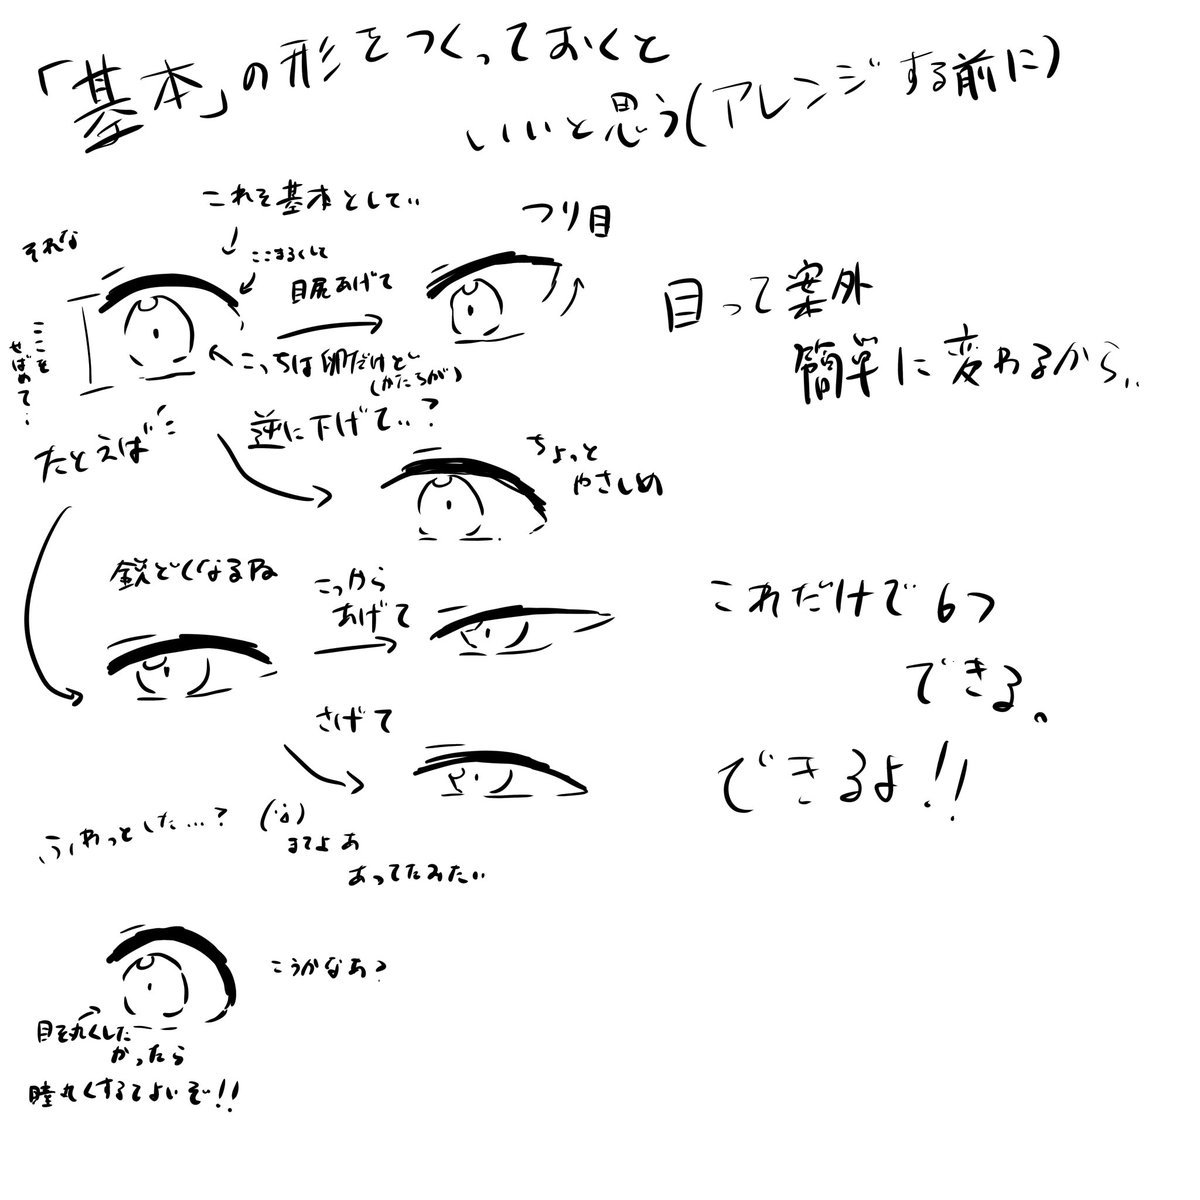 「基本」の形をつくっておくと
いいと思う(アレンジする前に)
これを基本として..
それな
ここまるくして
目尻あげて
つり目
ここを
せばめて...
こっちは卵だけど
(かたちが)
目って案外
簡単に変わるから..
たとえば
逆に下げて..?
ちょっと
やさしめ
鋭どくなるね
こっから
あげて
これだけで6つ
できる。
さげて
できるよ!!
ふわっとした...?
まてよあ
あってたみたい
こうかなあ?
目を丸くした
かったら
瞳丸くするてよいぞ!!